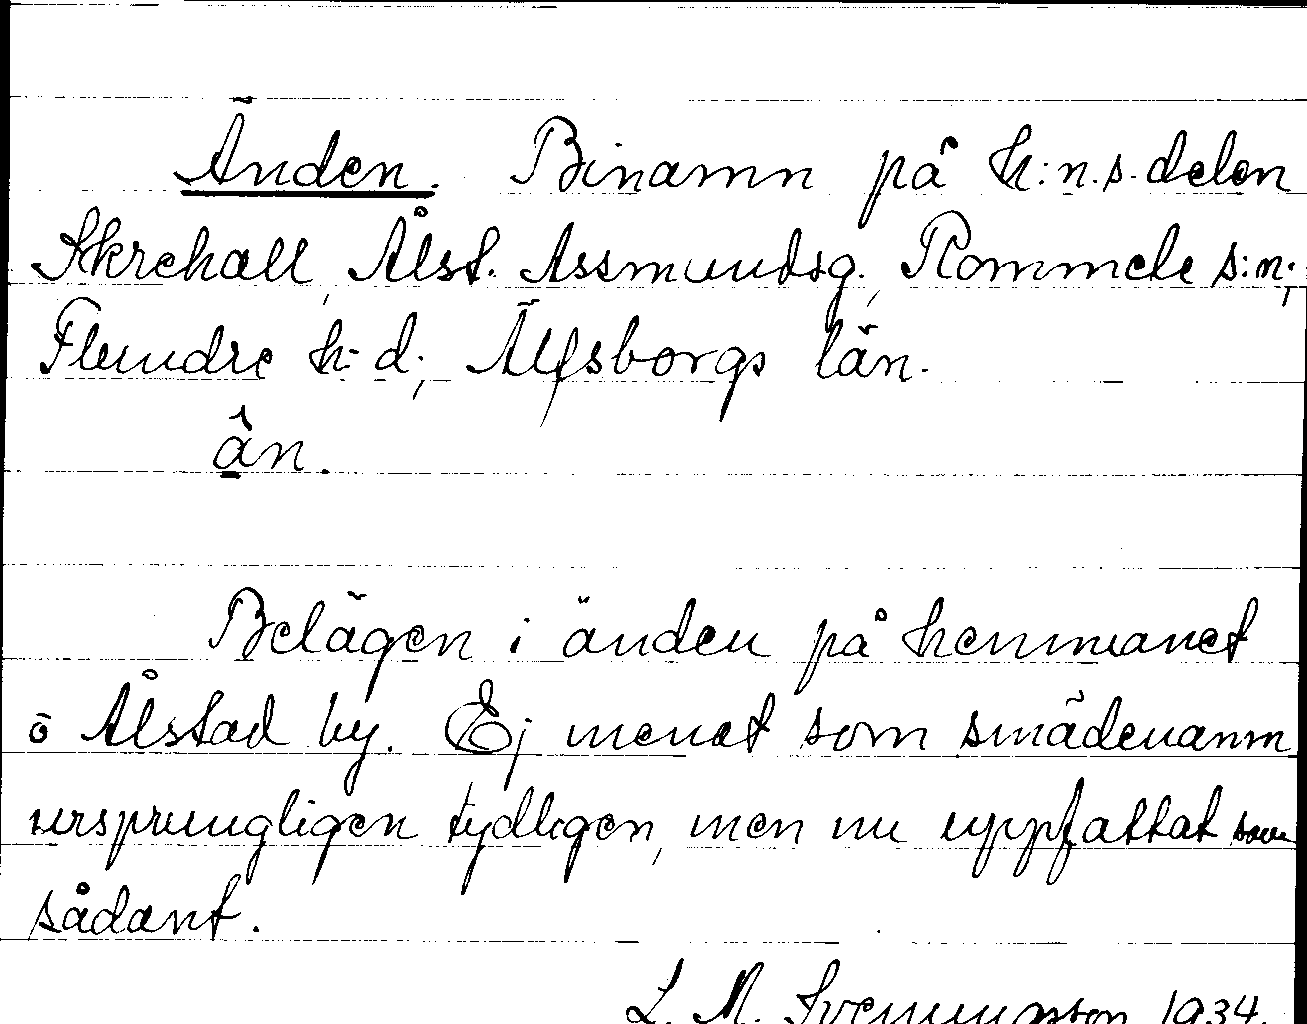 Änden. Binamn på h:n.s. delen
Skrehall, Ålst. Assmundsg., Rommele s:n;
Flundre h-d; Älfsborgs län.
ân.
Belägen i änden på hemmanet
ō Ålstad by. Ej menat som smädenamn
ursprungligen tydligen, men nu uppfattat som
sådant.
L. M. Svenungsson 1934.